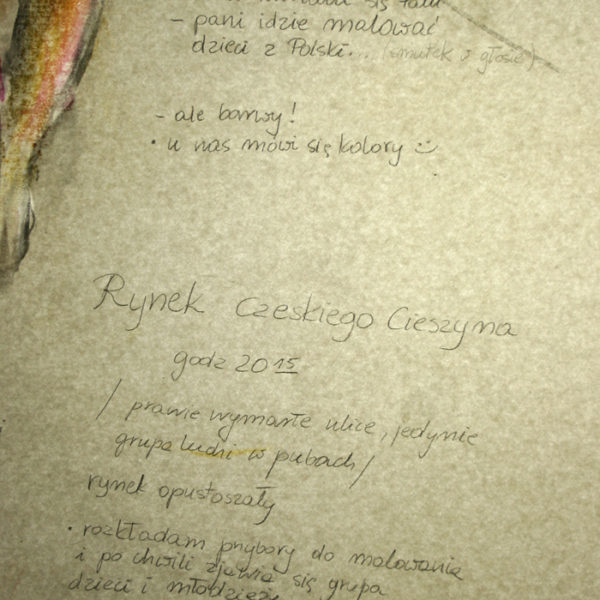 się tam
- pani idzie malować
dzieci z Polski... (smutek w głosie)
- ale barwy!
• u nas mówi się kolory :)
Rynek Czeskiego Cieszyna
godz 20 15
/ prawie wymarłe ulice, jedynie
grupa ludzi w pubach /
rynek opustoszały
• rozkładam przybory do malowania
i po chwili zjawia się grupa
dzieci i młodzieży